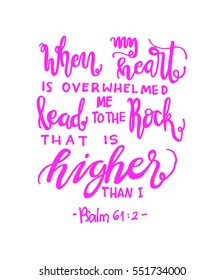 When my heart
IS OVERWHELMED
lead ME TO THE Rock
THAT IS
higher
THAN I
- Psalm 61:2 -
shutterstock.com · 551734000